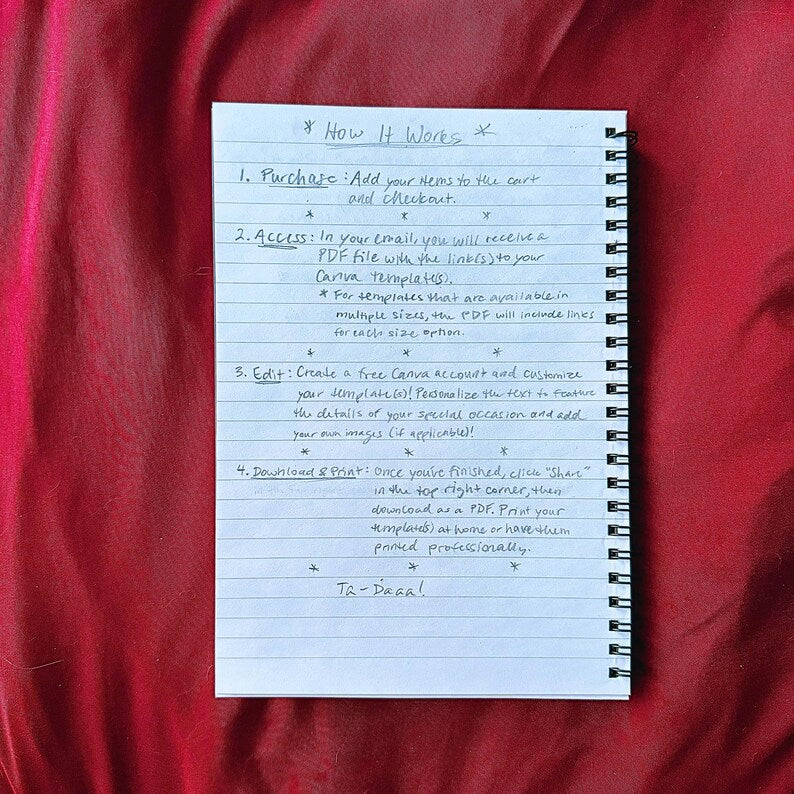 * How It Works *
1. Purchase: Add your items to the cart
and checkout.
* * *
2. Access: In your email, you will receive a
PDF file with the link(s) to your
Canva template(s).
* For templates that are available in
multiple sizes, the PDF will include links
for each size option.
* * *
3. Edit: Create a free Canva account and customize
your template(s)! Personalize the text to feature
the details of your special occasion and add
your own images (if applicable)!
* * *
4. Download & Print: Once you've finished, click "Share"
in the top right corner, then
download as a PDF. Print your
template(s) at home or have them
printed professionally.
* * *
Ta-Daaa!